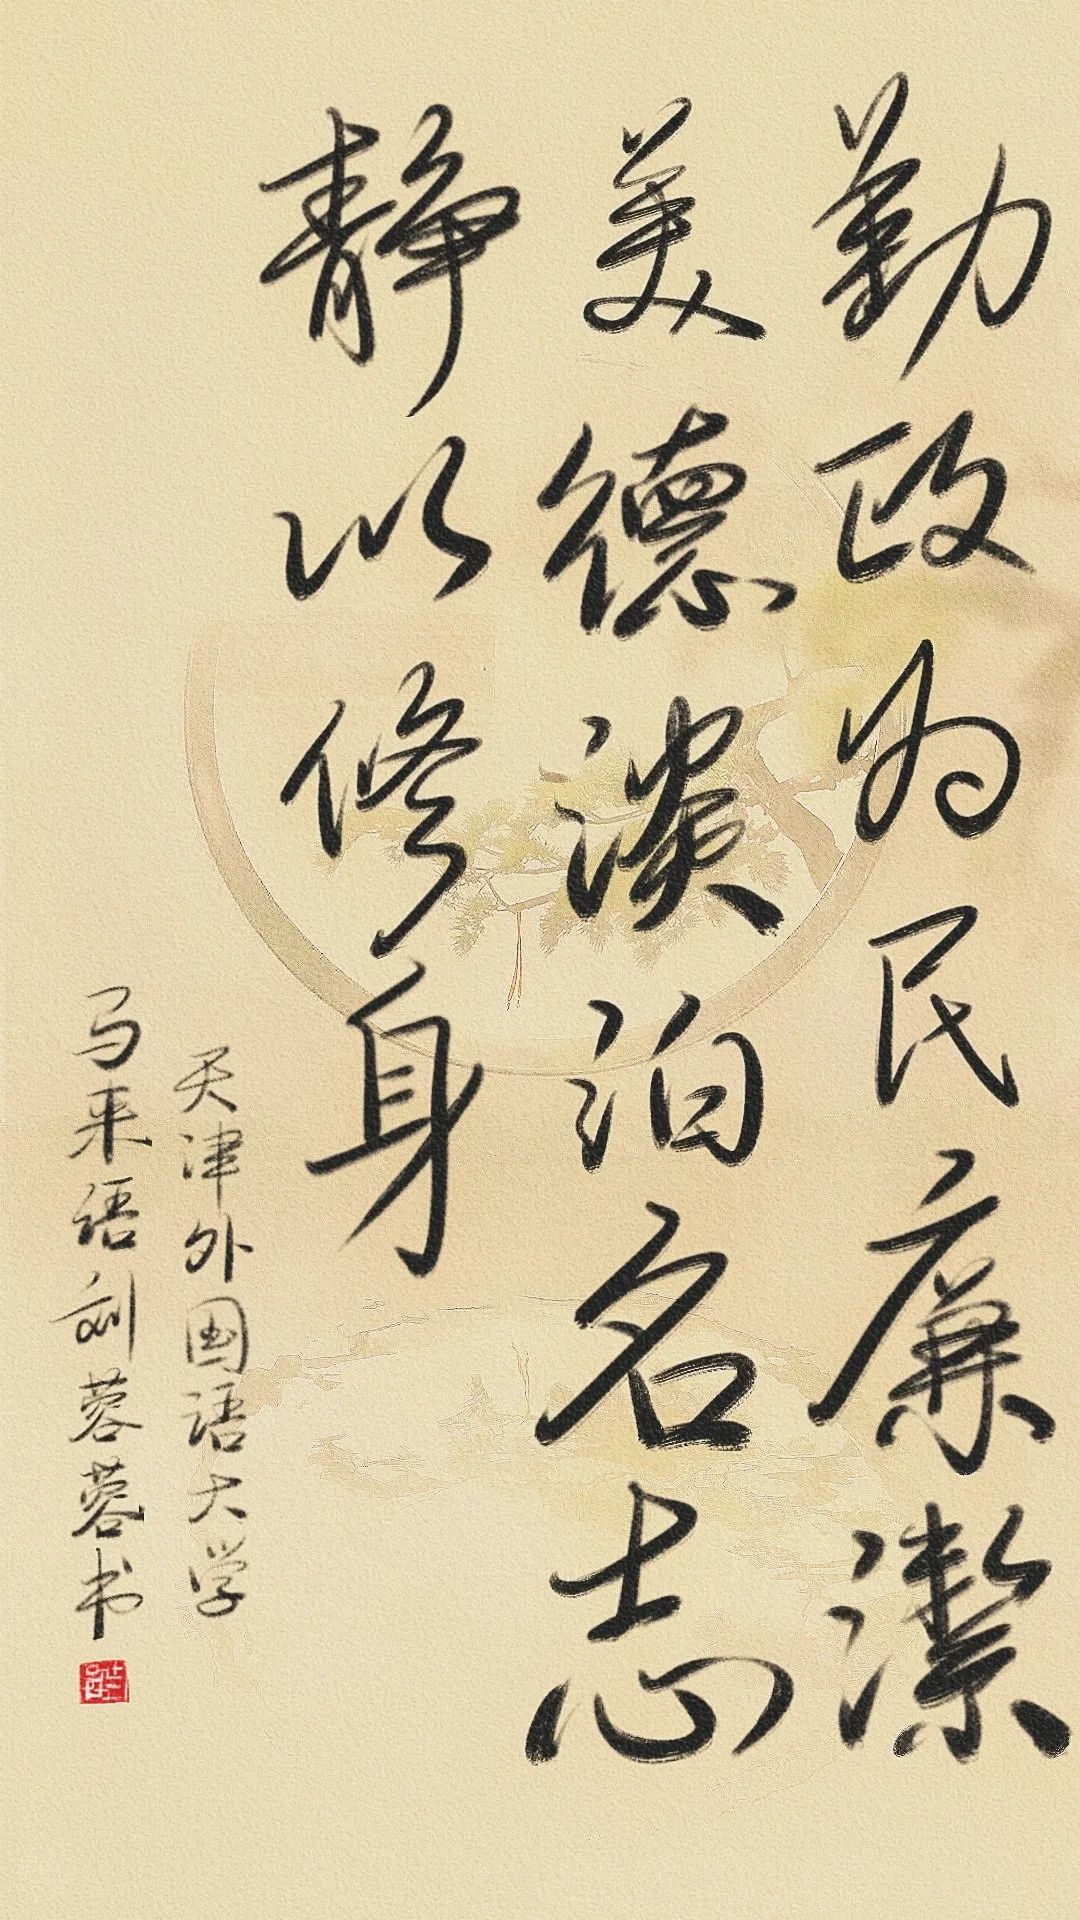 勤政为民廉潔
美德淡泊名志
静以修身
天津外国语大学
马来语刘蓉蓉书